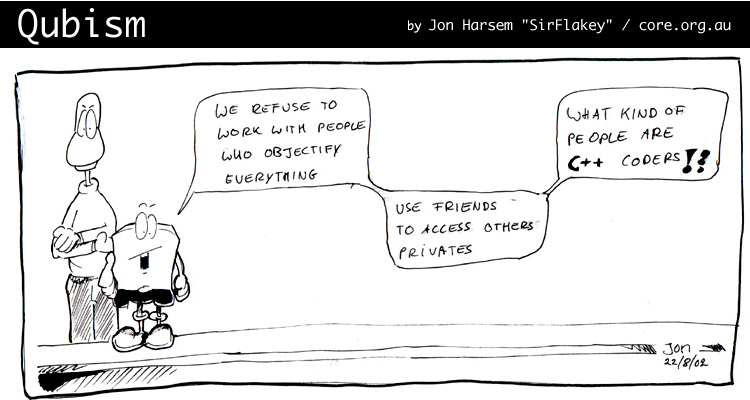 Qubism
by Jon Harsem "SirFlakey" / core.org.au
WE REFUSE TO
WORK WITH PEOPLE
WHO OBJECTIFY
EVERYTHING
USE FRIENDS
TO ACCESS OTHERS
PRIVATES
WHAT KIND OF
PEOPLE ARE
C++ CODERS!?
Jon
22/8/02